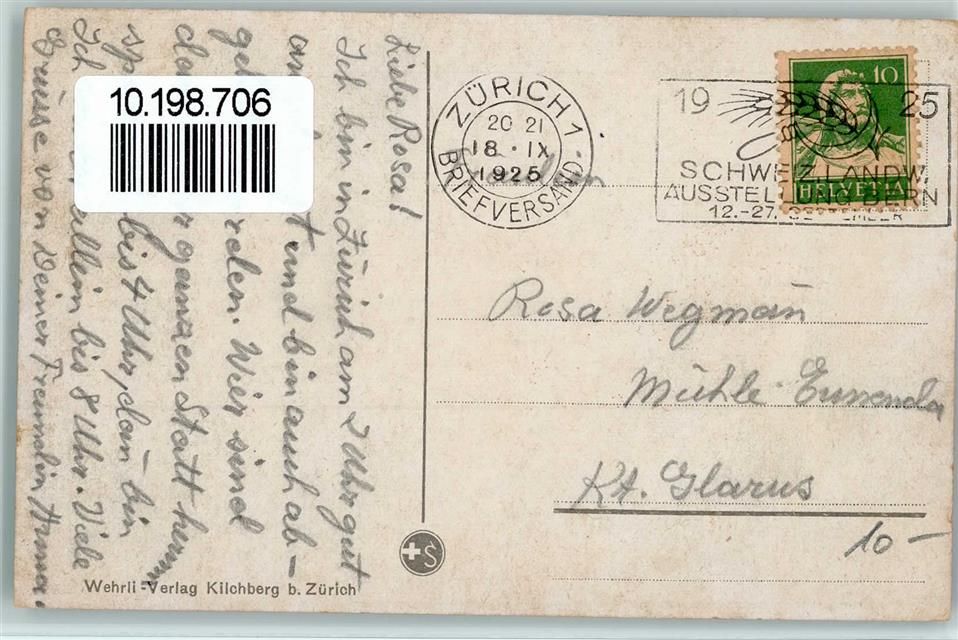 10.198.706
Liebe Rosa!
Ich bin in Zürich am 2 Uhr gut
und bin auch ab-
reden. Wir sind
ganzen Statt herum
bis 4 Uhr, dan̄ bin
Ich allein bis 8 Uhr. Viele
Grüsse von Deiner Freundin
ZÜRICH 1
20 21
18 · IX
1925
BRIEFVERSAND
19 25
SCHWEIZ. LANDW.
AUSSTELLUNG BERN
12.-27. SEPTEMBER
10
HELVETIA
Rosa Wegman̄
Mühle Ennenda
Kt. Glarus
10 -
S
Wehrli-Verlag Kilchberg b. Zürich